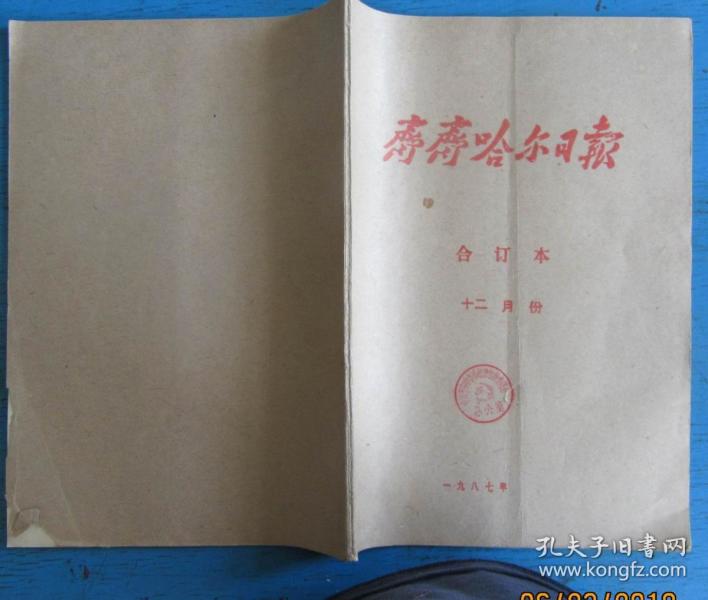 齊齊哈尔日报
合订本
十二月份
一九八七年
孔夫子旧书网
www.kongfz.com